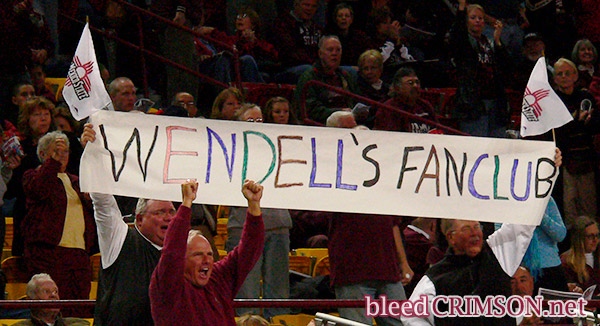 WENDELL'S FANCLUB
bleedCRIMSON.net